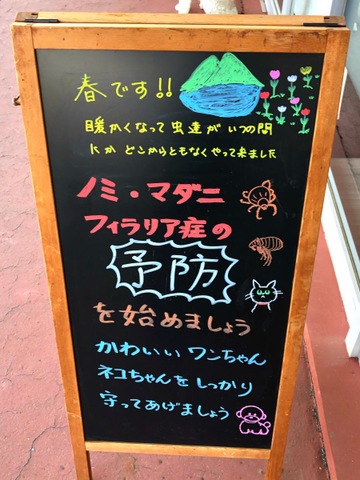 春です!!
暖かくなって虫達がいつの間
にかどこからともなくやって来ました
ノミ・マダニ
フィラリア症の
予防
を始めましょう
かわいいワンちゃん
ネコちゃんをしっかり
守ってあげましょう